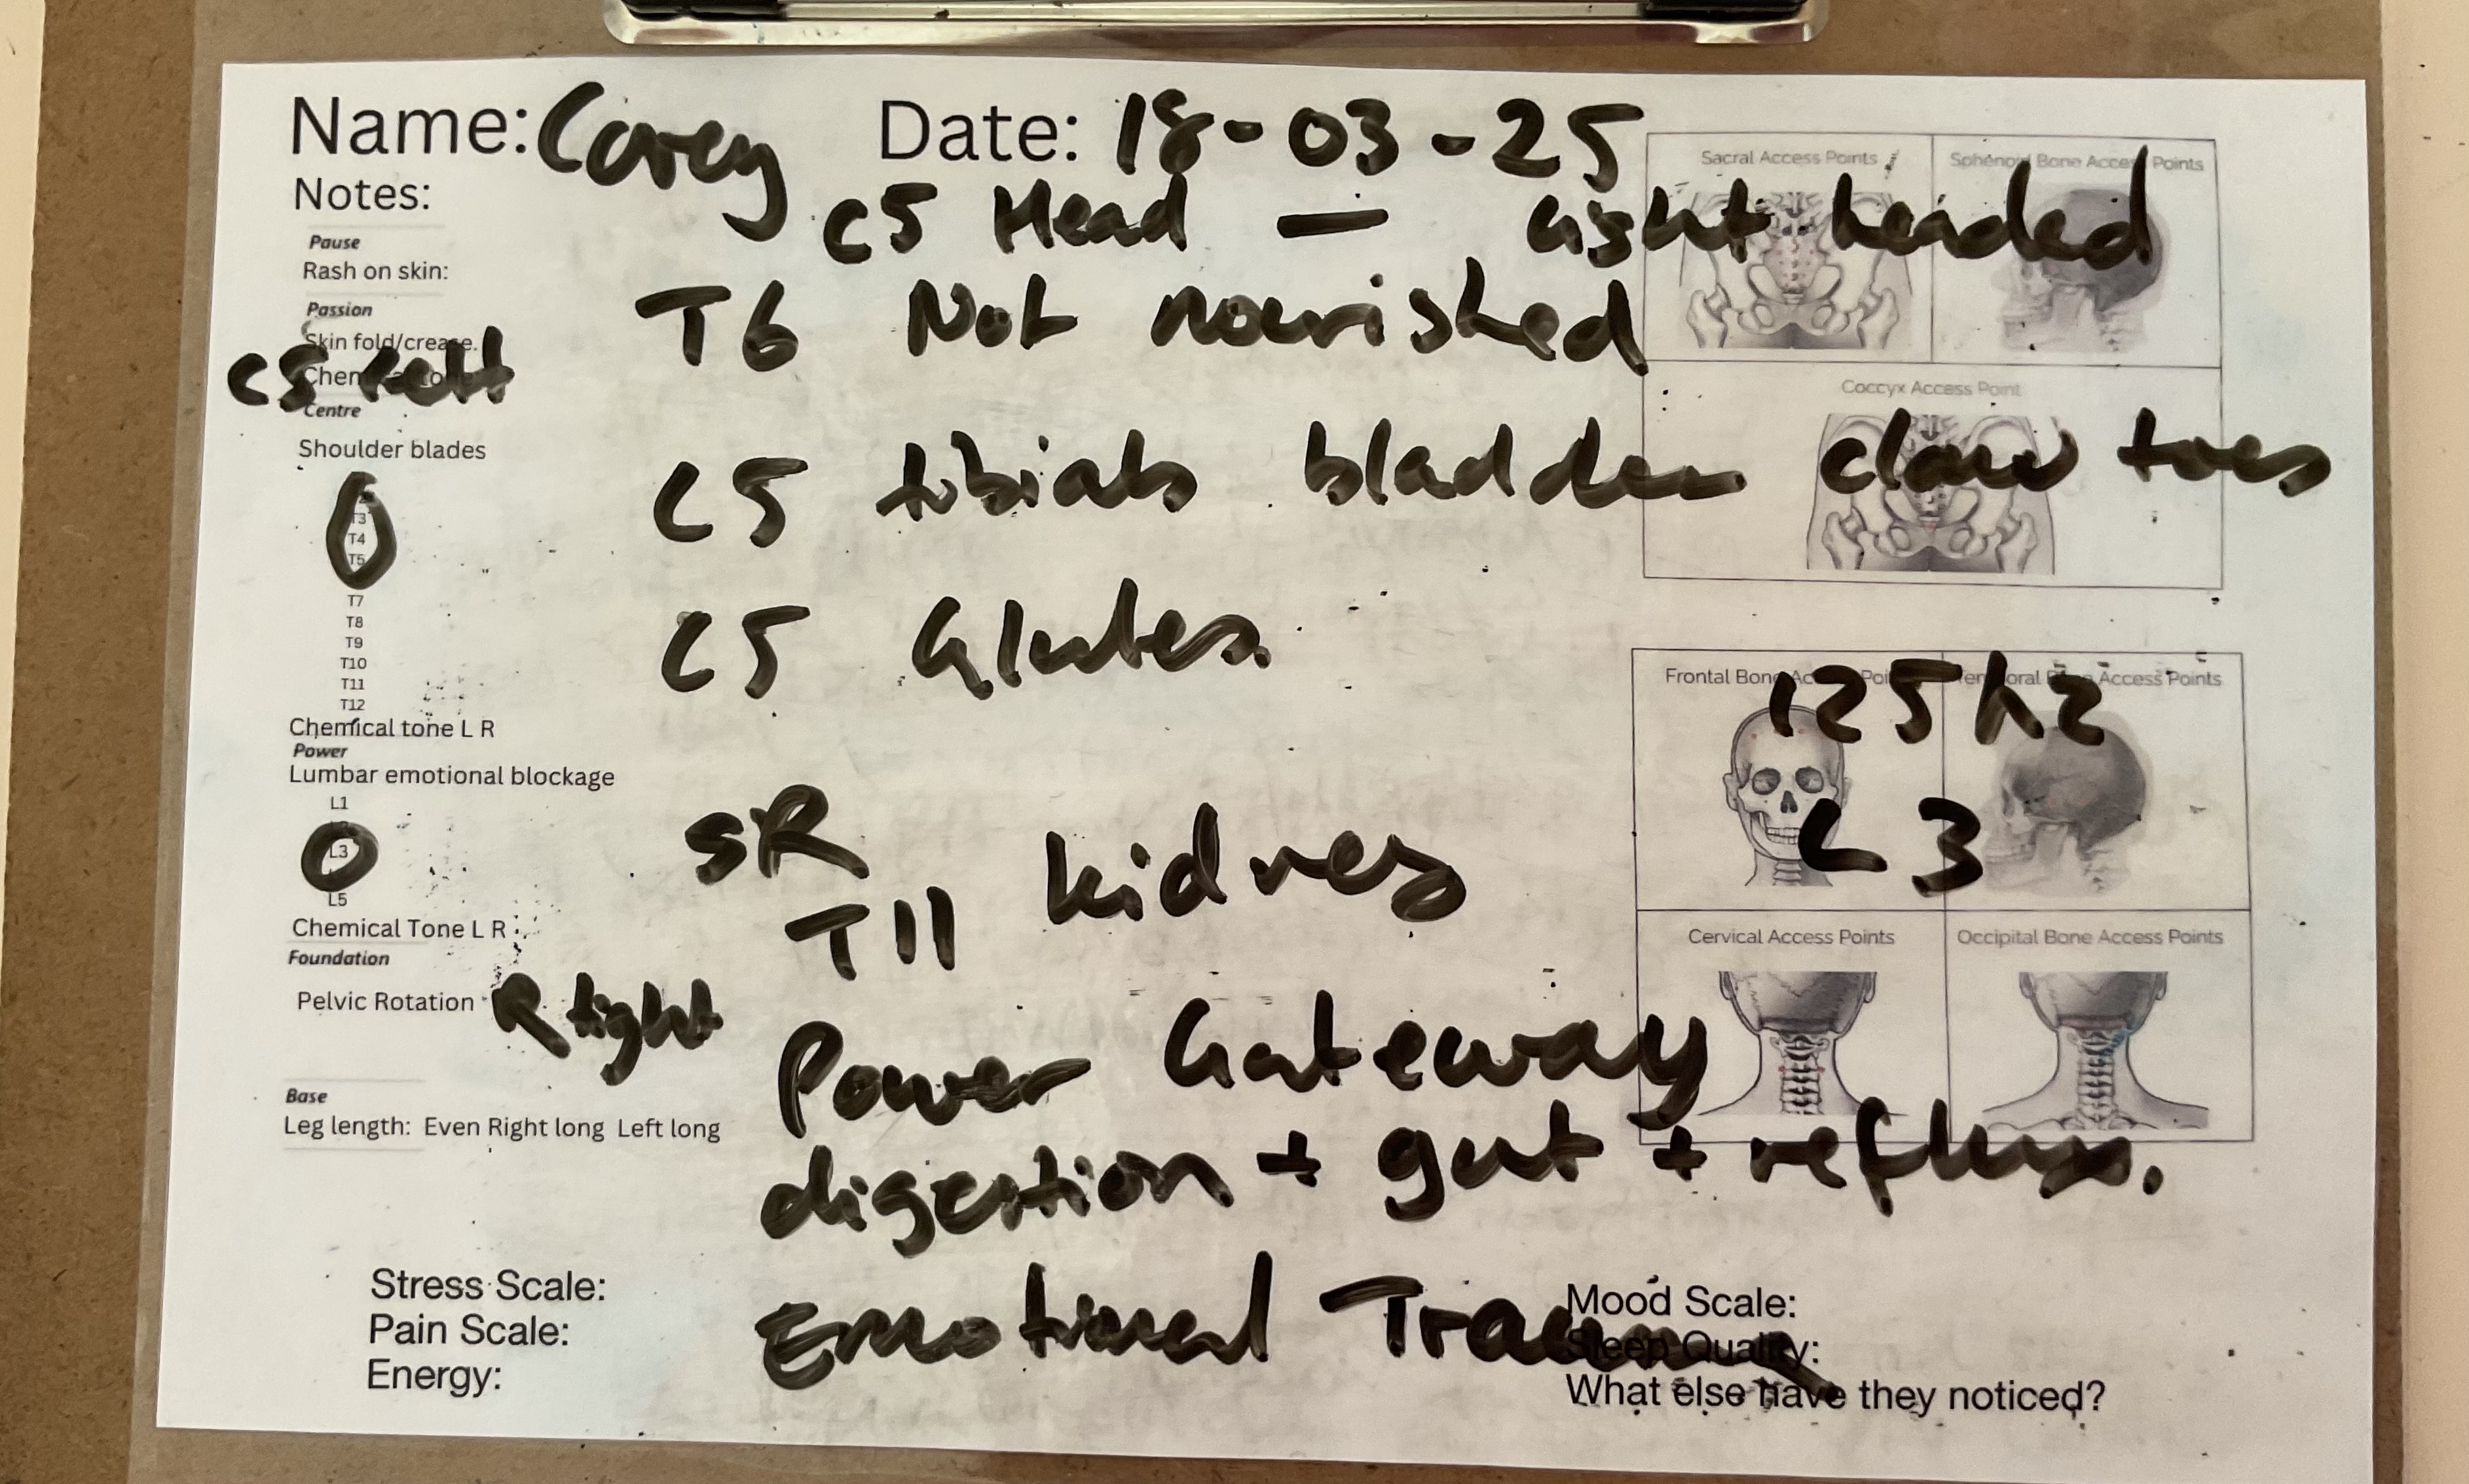 Name: Corey Date: 18-03-25
Notes:
Sacral Access Points
Sphenoid Bone Access Points
C5 Head — light headed
Pause
Rash on skin:
Passion
T6 Not nourished
Skin fold/crease.
C5 left
Centre
Coccyx Access Point
Shoulder blades
C5 tibials bladder claw toes
T3
T4
T5
T7
T8
T9
T10
T11
T12
C5 Glutes.
Frontal Bone Access Points
Temporal Bone Access Points
125hz
Chemical tone L R
Power
Lumbar emotional blockage
L1
L3
L5
SR
L3
T11 kidney
Chemical Tone L R
Cervical Access Points
Occipital Bone Access Points
Foundation
Pelvic Rotation R tight
Power Gateway
Base
Leg length: Even Right long Left long
digestion + gut + reflux.
Stress Scale:
Pain Scale:
Energy:
Emotional Trauma
Mood Scale:
Sleep Quality:
What else have they noticed?